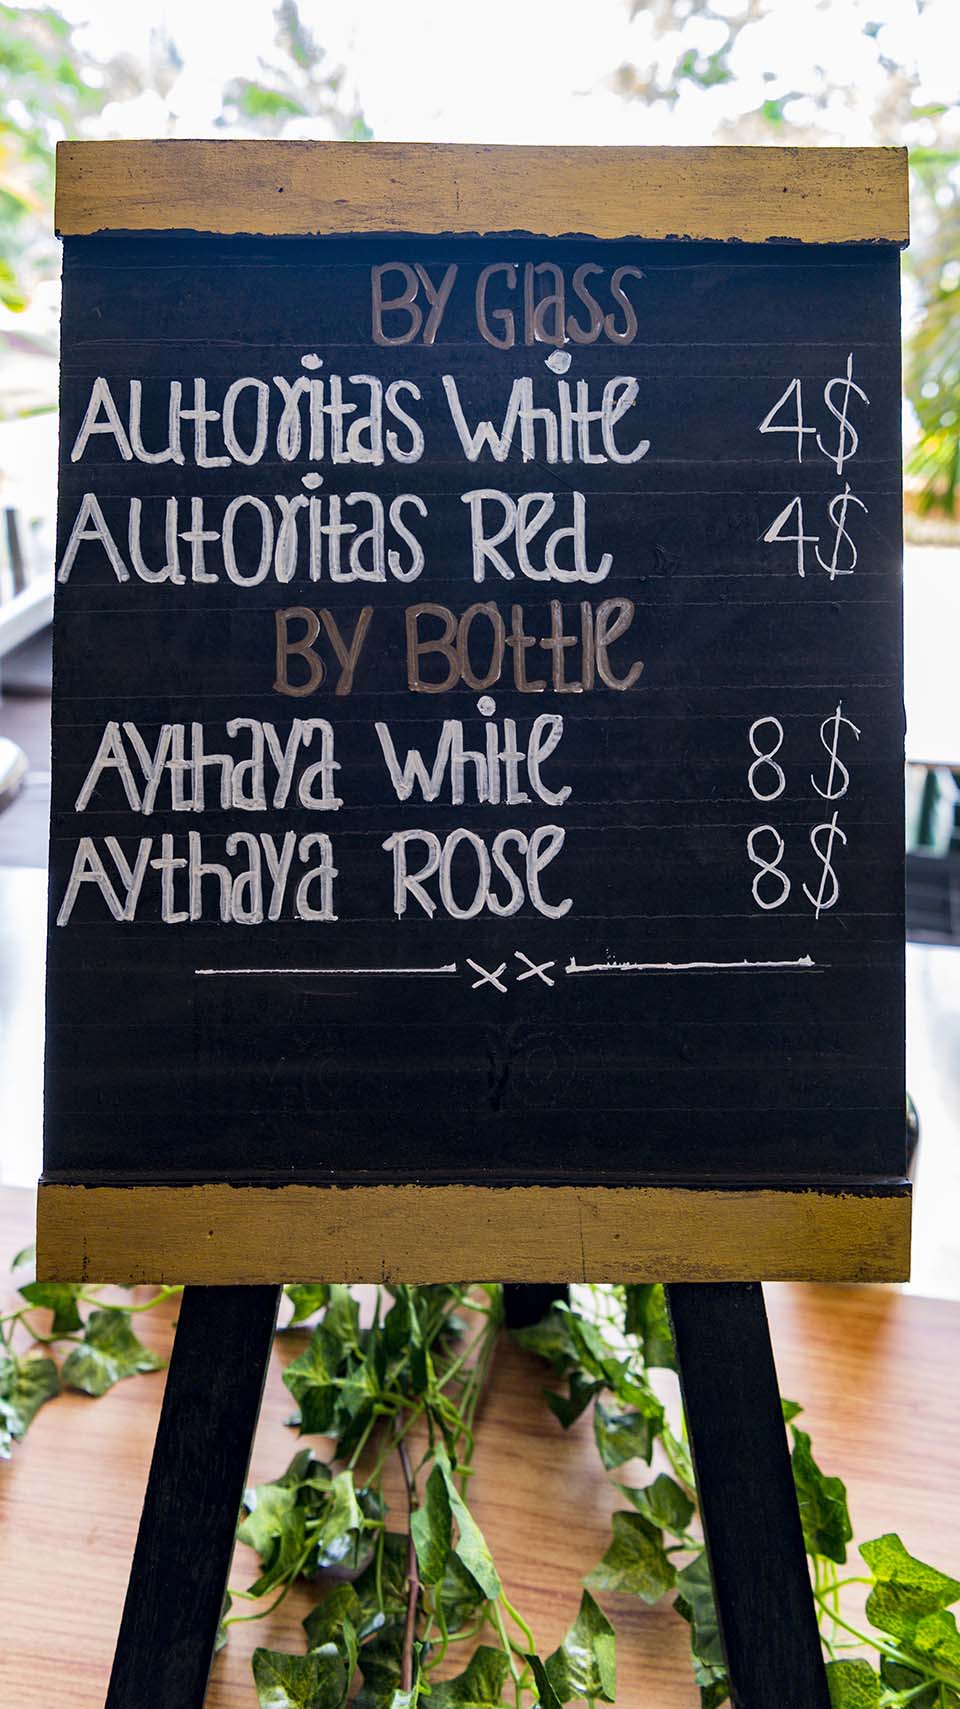 By Glass
Autoritas White 4$
Autoritas Red 4$
By Bottle
Aythaya White 8 $
Aythaya Rose 8$
xx